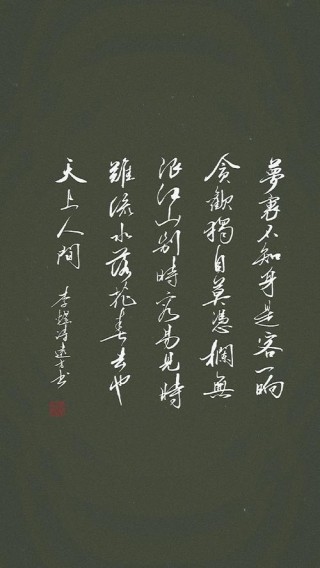 夢裏不知身是客一晌
貪歡獨自莫憑欄無
限江山別時容易見時
難流水落花春去也
天上人間
李煜